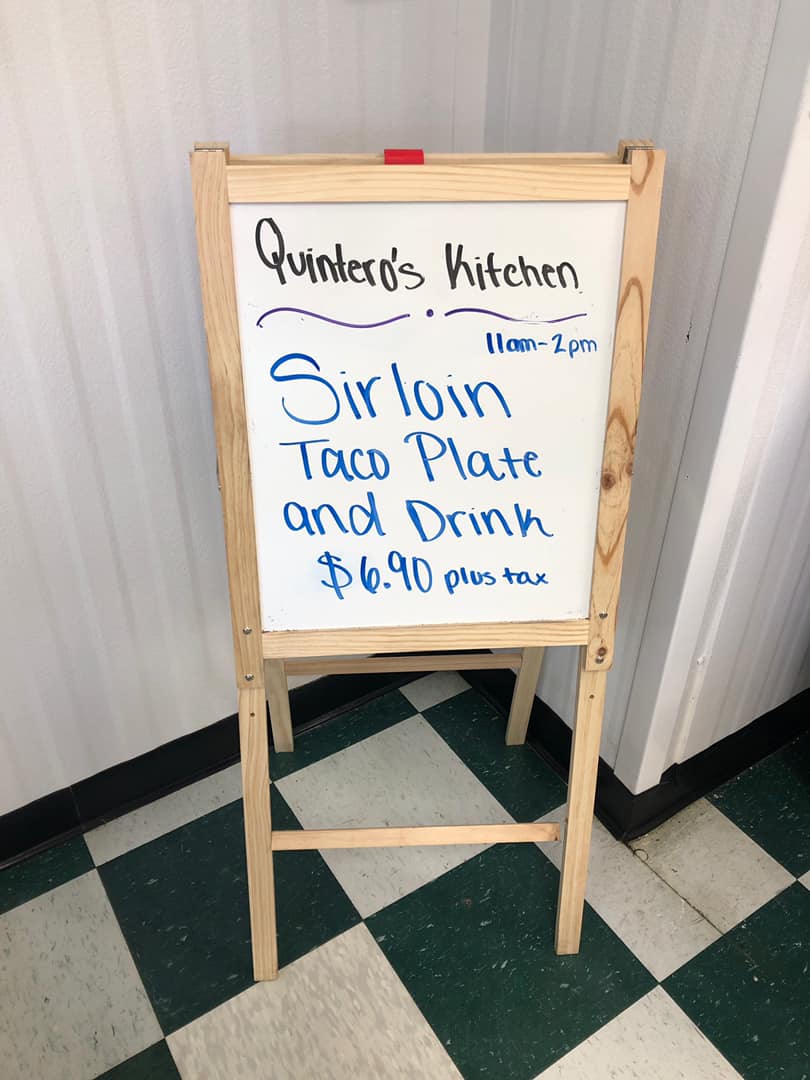 Quintero's Kitchen
11am-2pm
Sirloin
Taco Plate
and Drink
$6.90 plus tax